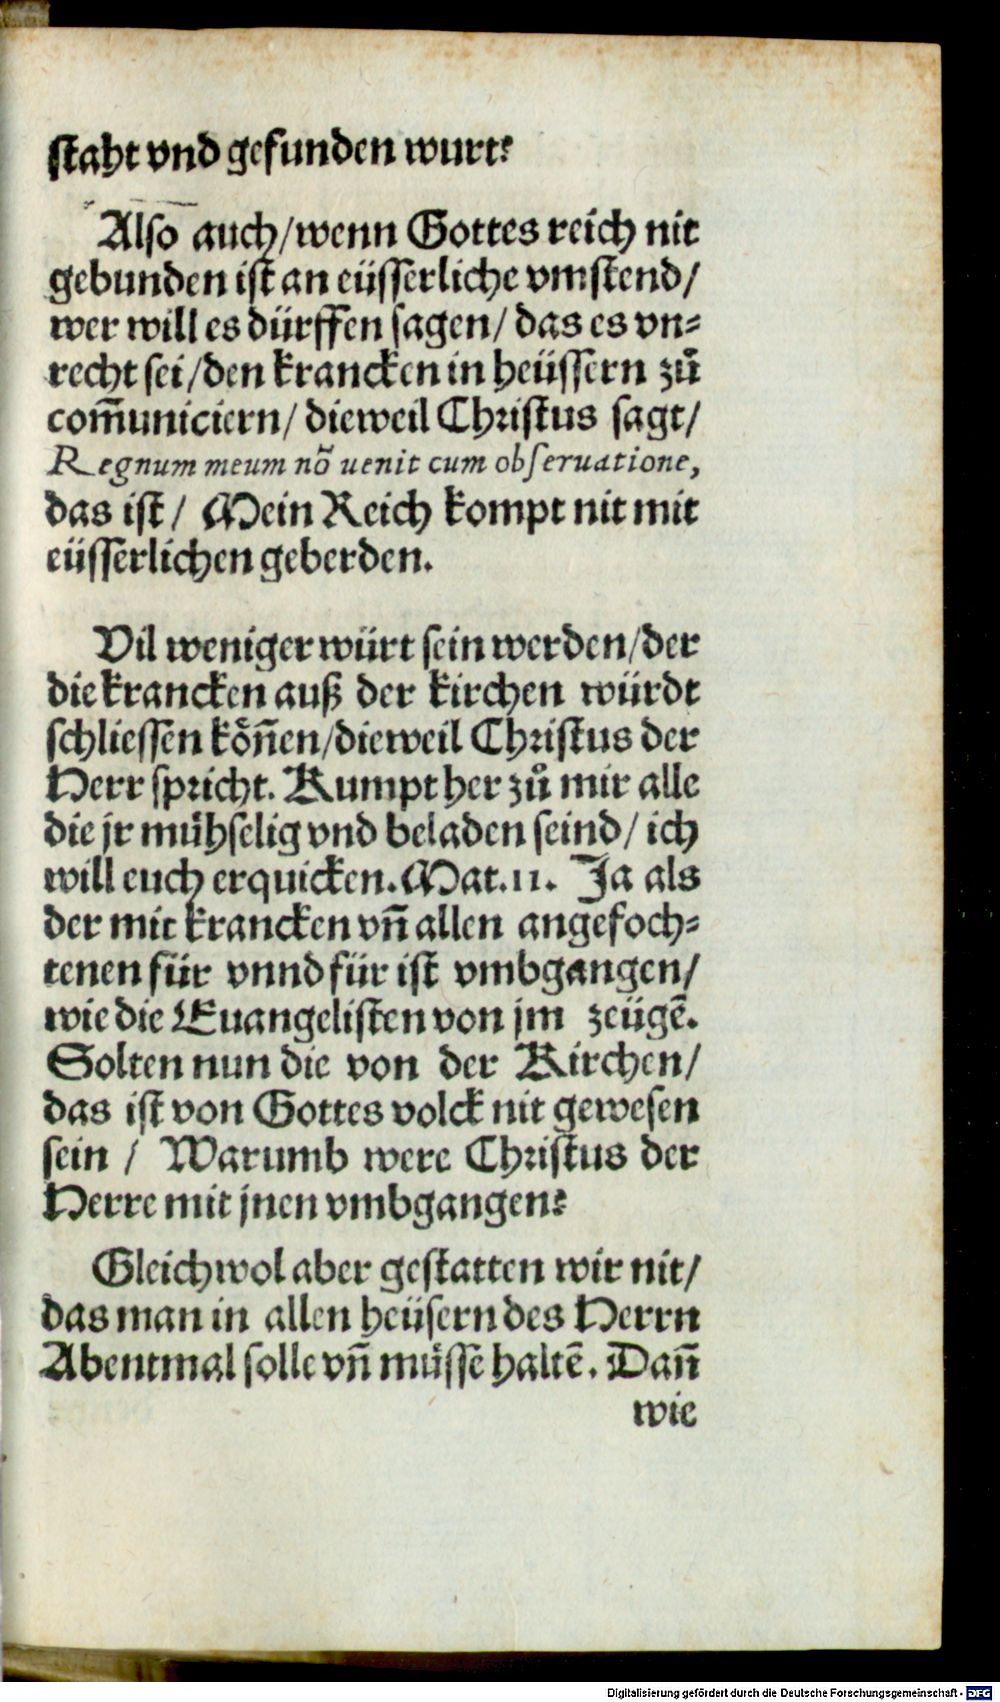 staht vnd gefunden wurt?
Also auch/wenn Gottes reich nit
gebunden ist an eüsserliche vmstend/
wer will es dürffen sagen/ das es vn⸗
recht sei/den krancken in heüssern zů
com̃uniciern/ dieweil Christus sagt/
Regnum meum nõ uenit cum obseruatione,
das ist/ Mein Reich kompt nit mit
eüsserlichen geberden.
Vil weniger würt sein werden/der
die krancken auß der kirchen würdt
schliessen kôn̄en/dieweil Christus der
Herr spricht. Kumpt her zů mir alle
die jr mühselig vnd beladen seind/ ich
will euch erquicken. Mat. 11. Ja als
der mit krancken vn̄ allen angefoch⸗
tenen für vnnd für ist vmbgangen/
wie die Euangelisten von jm zeügē.
Solten nun die von der Kirchen/
das ist von Gottes volck nit gewesen
sein / Warumb were Christus der
Herre mit jnen vmbgangen?
Gleichwol aber gestatten wir nit/
das man in allen heüsern des Herrn
Abentmal solle vn̄ müssē haltē. Dan̄
wie
Digitalisierung gefördert durch die Deutsche Forschungsgemeinschaft - DFG